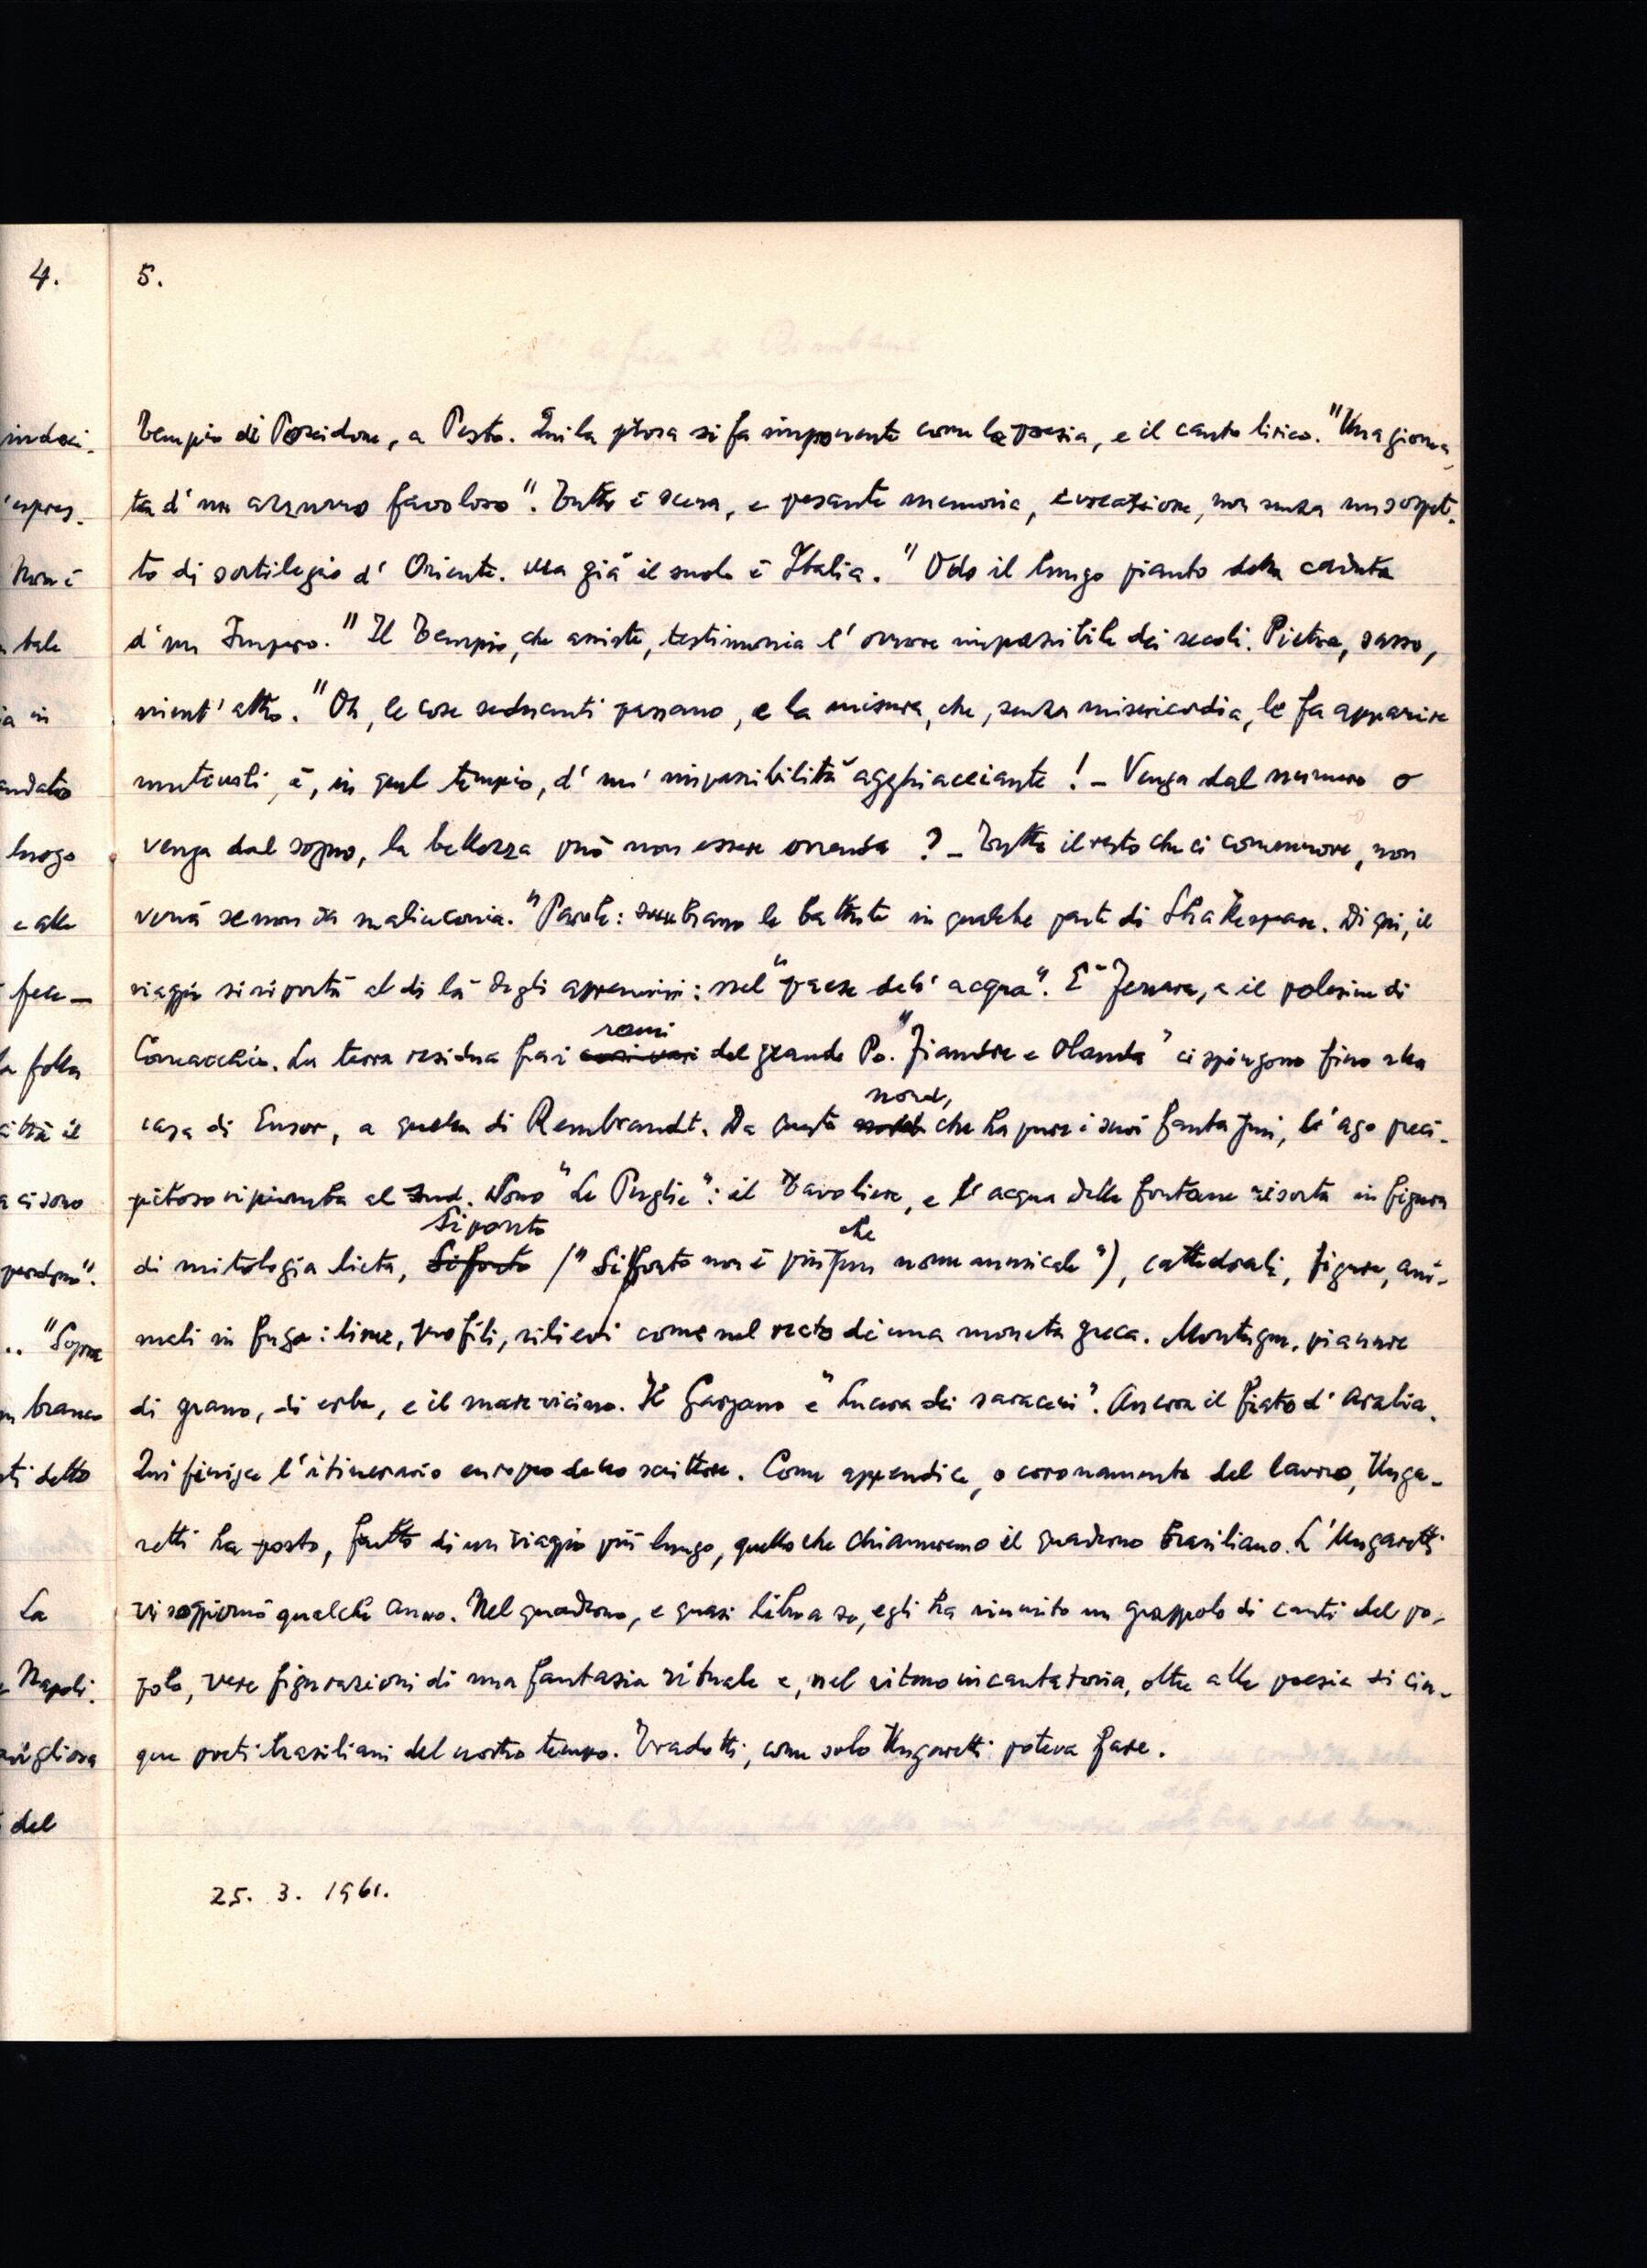 4.
5.
Tempio di Poseidone, a Pesto. Qui la prosa si fa imponente come la poesia, e il canto lirico. "Una giorna-
ta d'un azzurro favoloso". Tutto è scena, e pesante memoria, evocazione, non senza un sospet-
to di sortilegio d'Oriente. Ma già il suolo è Italia. "Odo il lungo pianto della caduta
d'un Impero." Il Tempio, che assiste, testimonia l'orrore impassibile dei secoli. Pietra, sasso,
nient'altro. "Oh, le cose seducenti passano, e la misura, che, senza misericordia, le fa apparire
mutevoli, è, in quel tempio, d'un'impassibilità agghiacciante! - Venga dal numero o
venga dal sogno, la bellezza può non essere orrenda? - Tutto il resto che ci commuove, non
verrà se non da malinconia." Parole: sembrano le battute in qualche parte di Shakespeare. Di qui, il
viaggio si riporta al di là degli appennini: nel "paese dell'acqua". È Ferrara, e il polesine di
rami
Comacchio. La terra residua fra i del grande Po. "Fiandre e Olanda" ci spingono fino alla
nord,
casa di Ensor, a quella di Rembrandt. Da questo che ha pure i suoi fantasmi, l'ago preci-
pitoso ripiomba al sud. Sono "Le Puglie": il Tavoliere, e l'acqua delle fontane risorta in figura
Siponto che
di mitologia lieta, Sifonto ("Siponto non è più un nome musicale"), cattedrali, figure, ani-
mali in fuga: linee, profili, rilievi come nel recto di una moneta greca. Montagne, pianure
di grano, di erbe, e il mare vicino. Il Gargano e "Lucera dei saraceni". Ancora il fiato d'Arabia.
Qui finisce l'itinerario europeo dello scrittore. Come appendice, o coronamento del lavoro, Unga-
retti ha posto, frutto di un viaggio più lungo, quello che chiameremo il quaderno brasiliano. L'Ungaretti
vi soggiornò qualche anno. Nel quaderno, e quasi libro a sé, egli ha riunito un grappolo di canti del po-
polo, vere figurazioni di una fantasia rituale e, nel ritmo incantatoria, oltre alle poesie di cin-
que poeti brasiliani del nostro tempo. Tradotti, come solo Ungaretti poteva fare.
25. 3. 1961.